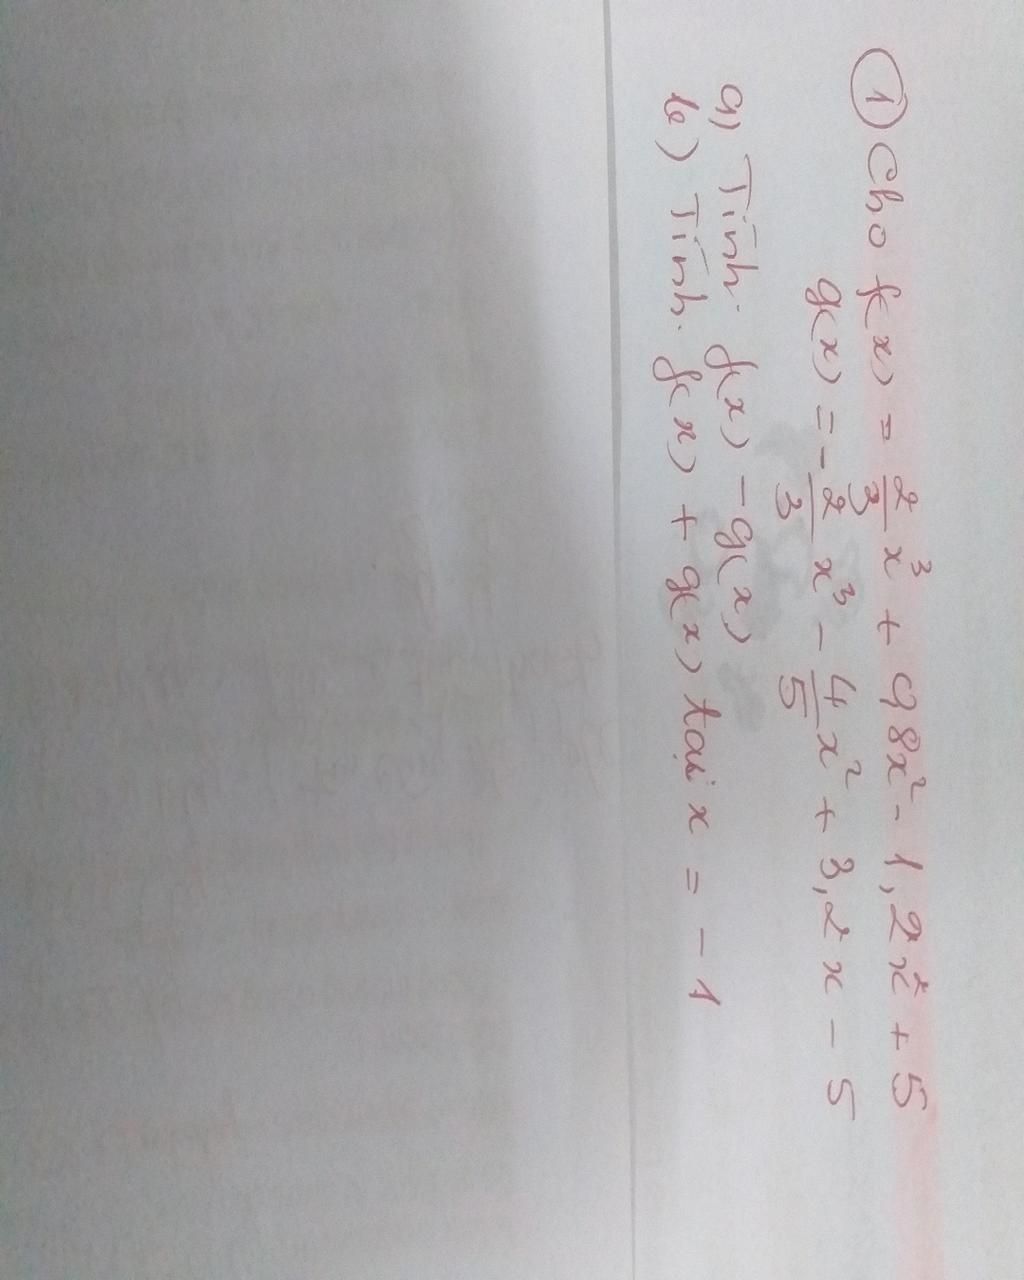 ① Cho f(x) = 2/3 x³ + 98x² - 1,2x² + 5
g(x) = - 2/3 x³ - 4/5 x² + 3,2x - 5
a) Tính f(x) - g(x)
b) Tính f(x) + g(x) tại x = -1